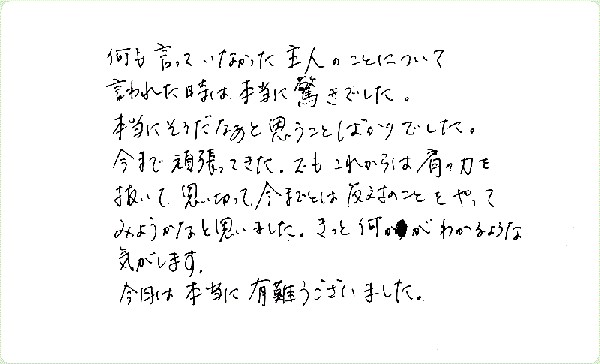 何も言っていなかった主人のことについて
言われた時は本当に驚きでした。
本当にそうだなあと思うことばかりでした。
今まで頑張ってきた。でもこれからは肩の力を
抜いて、思い切って、今までとは反対のことをやって
みようかなと思いました。きっと何かがわかるような
気がします。
今日は本当に有難うございました。